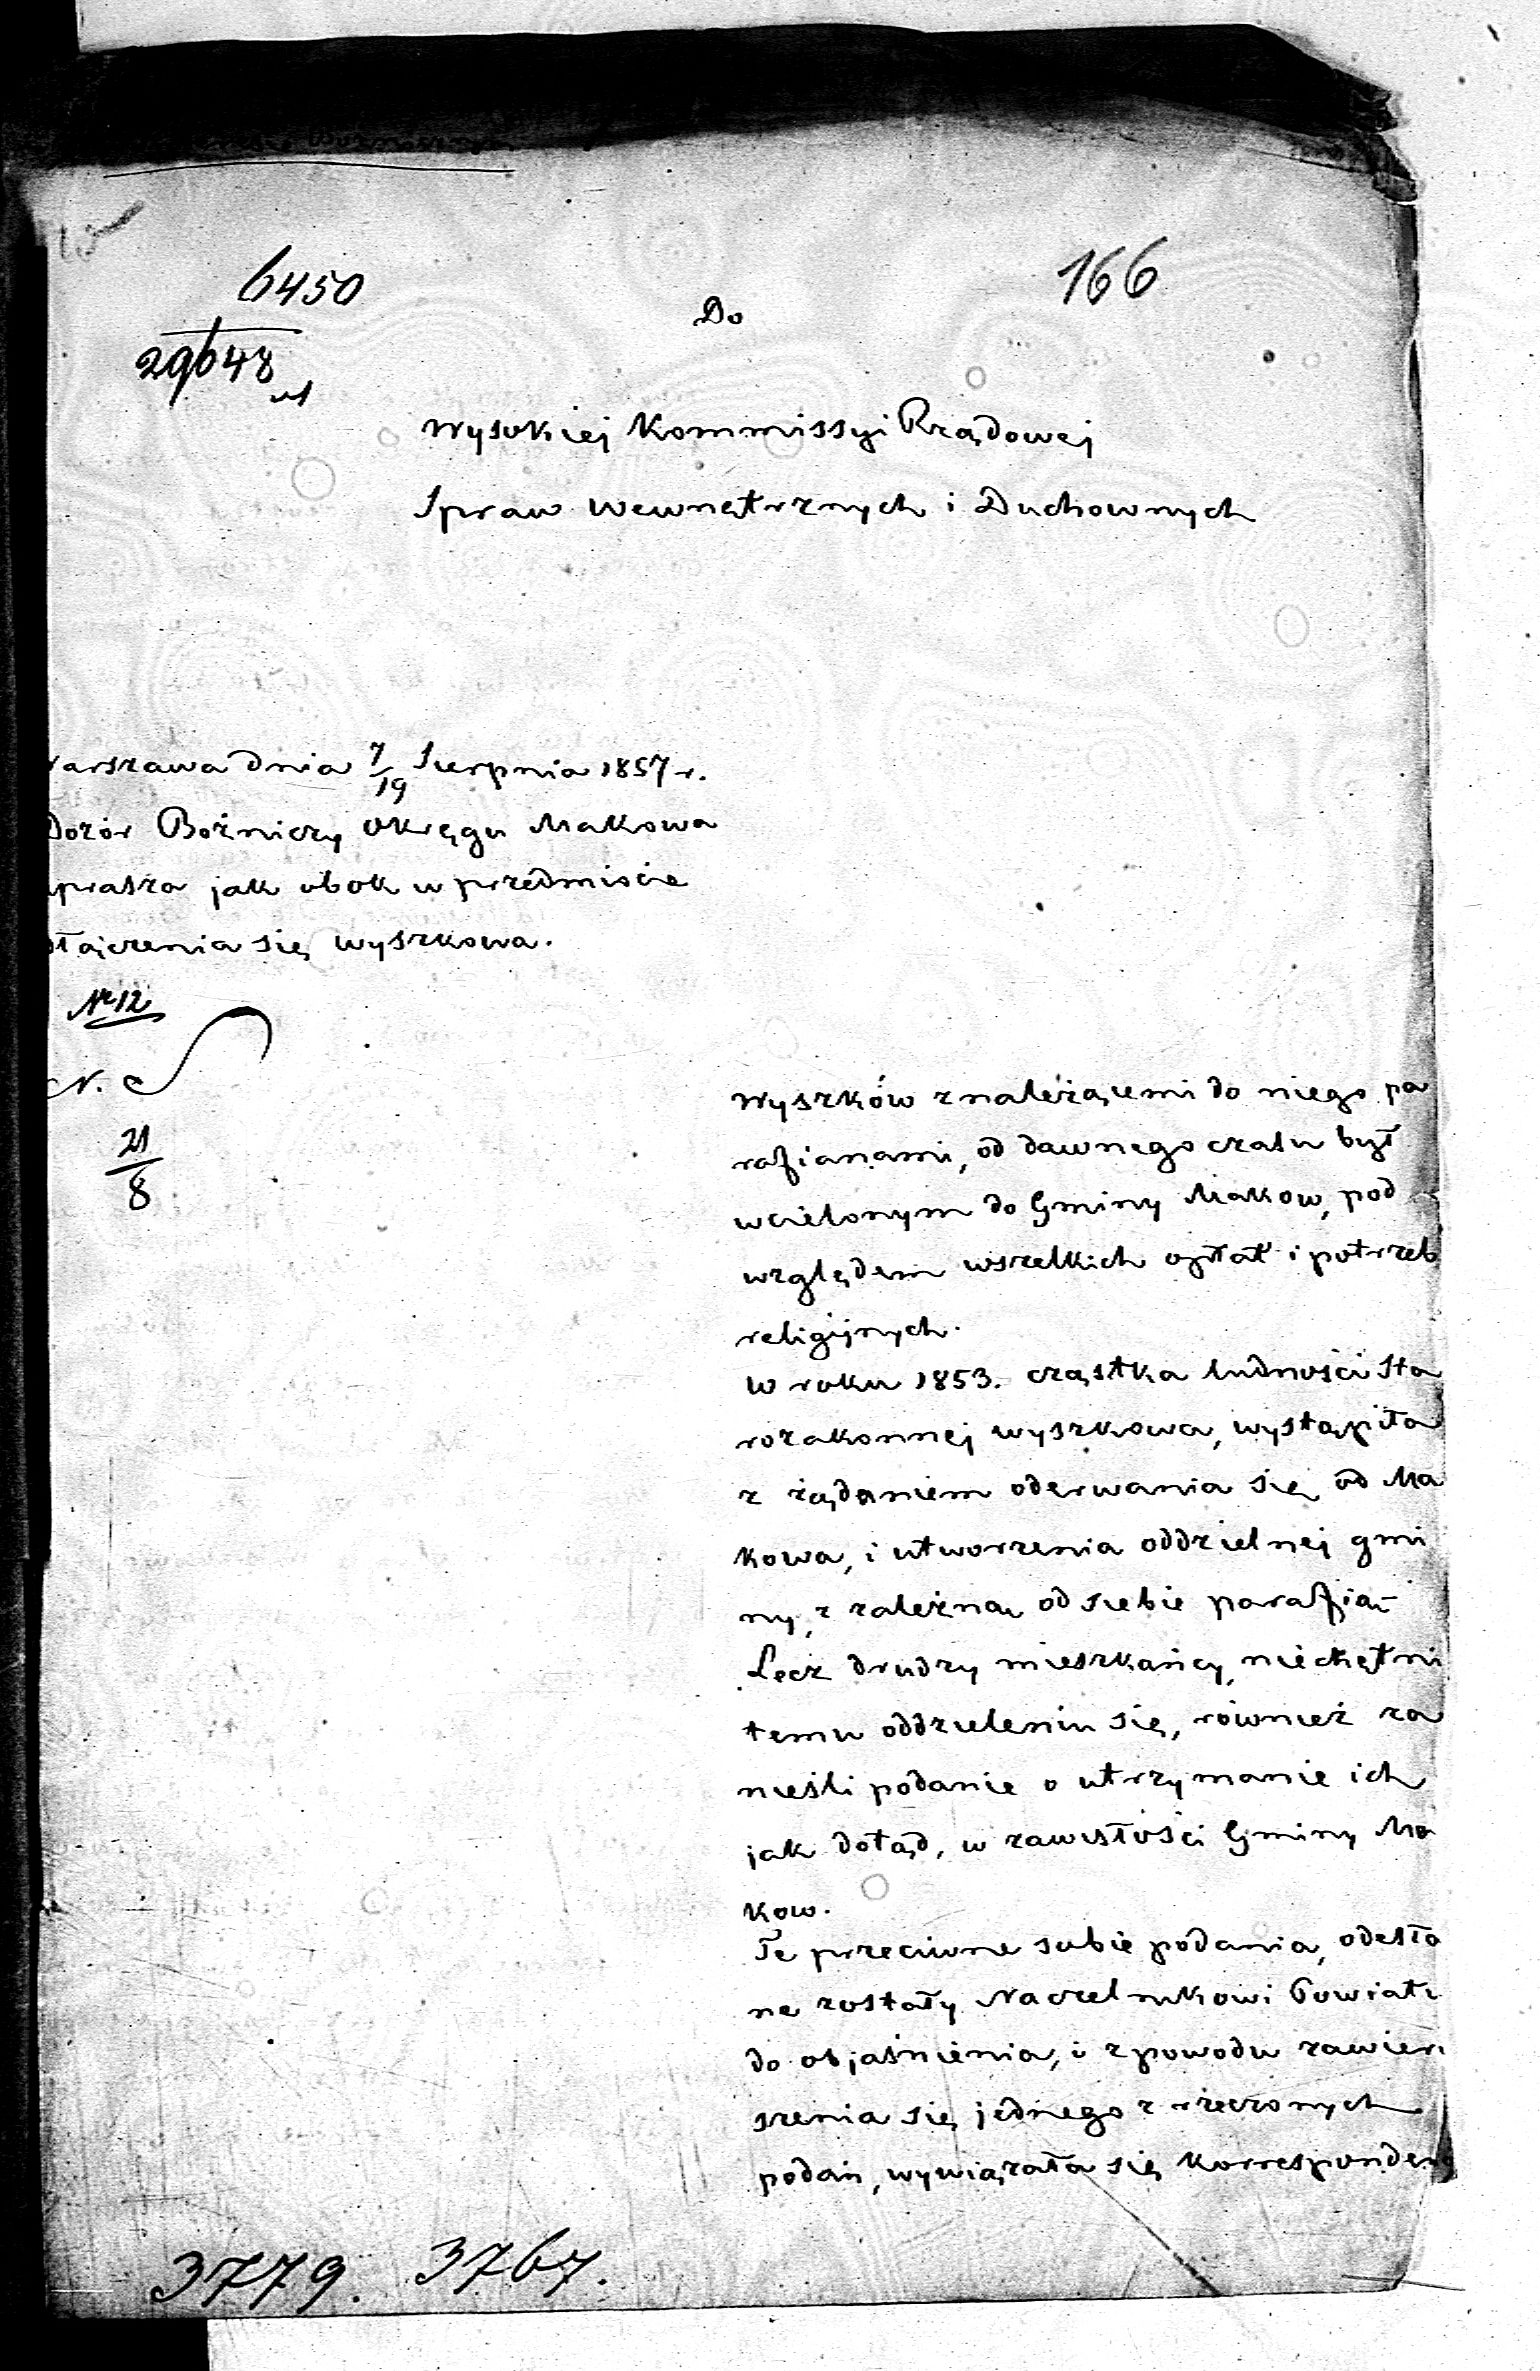 6450
166
29648
Do
Wysokiej Kommissyi Rządowej
Spraw Wewnętrznych i Duchownych
Warszawa dnia 7/19 Sierpnia 1857 r.
Dozór Bożniczy Okręgu Makowa
uprasza jak obok w przedmiocie
ołączenia się Wyszkowa.
Nr 12
21/8
Wyszków z należącemi do niego pa
rafianami, od dawnego czasu był
wcielonym do Gminy Makow, pod
względem wszelkich opłat i potrzeb
religijnych.
W roku 1853. cząstka ludności Sta
rozakonnej Wyszkowa, wystąpiła
z żądaniem oderwania się od Ma
kowa, i utworzenia oddzielnej gmi
ny, z zależną od siebie parafią-
Lecz drudzy mieszkańcy, niechętni
temu oddzieleniu się, również za
nieśli podanie o utrzymanie ich
jak dotąd, w zawisłości Gminy Ma
kow.
Te przeciwne sobie podania, odesła
ne zostały Naczelnikowi Powiatu
do objaśnienia, i z powodu zawieru
szenia się jednego z rzeczonych
podań, wywiązała się Korrespondenc
3779. 3767.